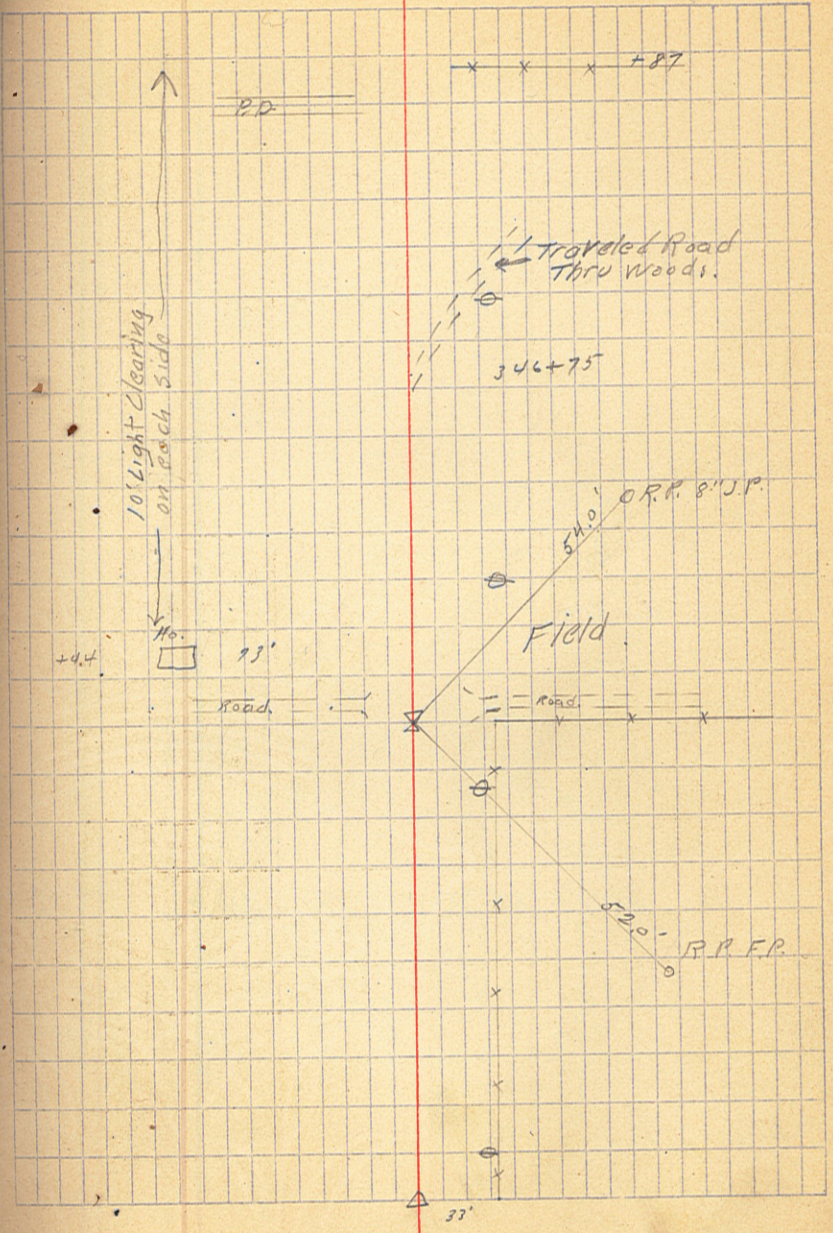 +87
P.D.
Traveled Road
Thru Woods.
346+75
10' Light Clearing
on each side
R.P. 8" J.P.
54.0'
Field.
Ho.
+44
73'
Road.
Road.
52.0'
R.P. F.P.
33'